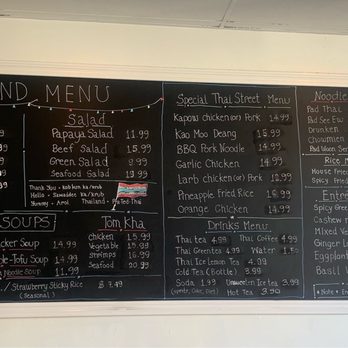 ND MENU
Salad
Papaya Salad 11.99
Beef Salad 15.99
Green Salad 8.99
Seafood Salad 19.99
Thank You - kob kun ka/krub
Hello - Sawasdee ka/krub
Yummy - Aroi
Thailand
SOUPS
Soup 14.99
Tofu Soup 14.99
Noodle Soup 11.99
Tom Kha
chicken 15.99
Vegetable 15.99
shrimps 16.99
Seafood 20.99
/ Strawberry Sticky Rice
(Seasonal)
$ 7.49
Special Thai Street Menu
Kapow chicken (or) Pork 14.99
Kao Moo Deang 15.99
BBQ Pork Noodle 14.99
Garlic Chicken 14.99
Larb chicken (or) Pork 13.99
Pineapple Fried Rice 16.99
Orange Chicken 14.99
Drinks Menu
Thai tea 4.99 Thai Coffee 4.99
Thai Green tea 4.99 Water 1.50
Thai Ice lemon Tea 4.99
Cold Tea (Bottle) 3.99
Soda 1.99 Unsweeten Ice tea 3.99
Hot Tea 3.99
Noodle
Pad Thai
Pad See Ew
Drunken
Chowmien
Rice M
House Fried
Spicy Fried
Entre
Spicy Green
Cashew
Mixed Ve
Ginger L
Eggplant
Basil